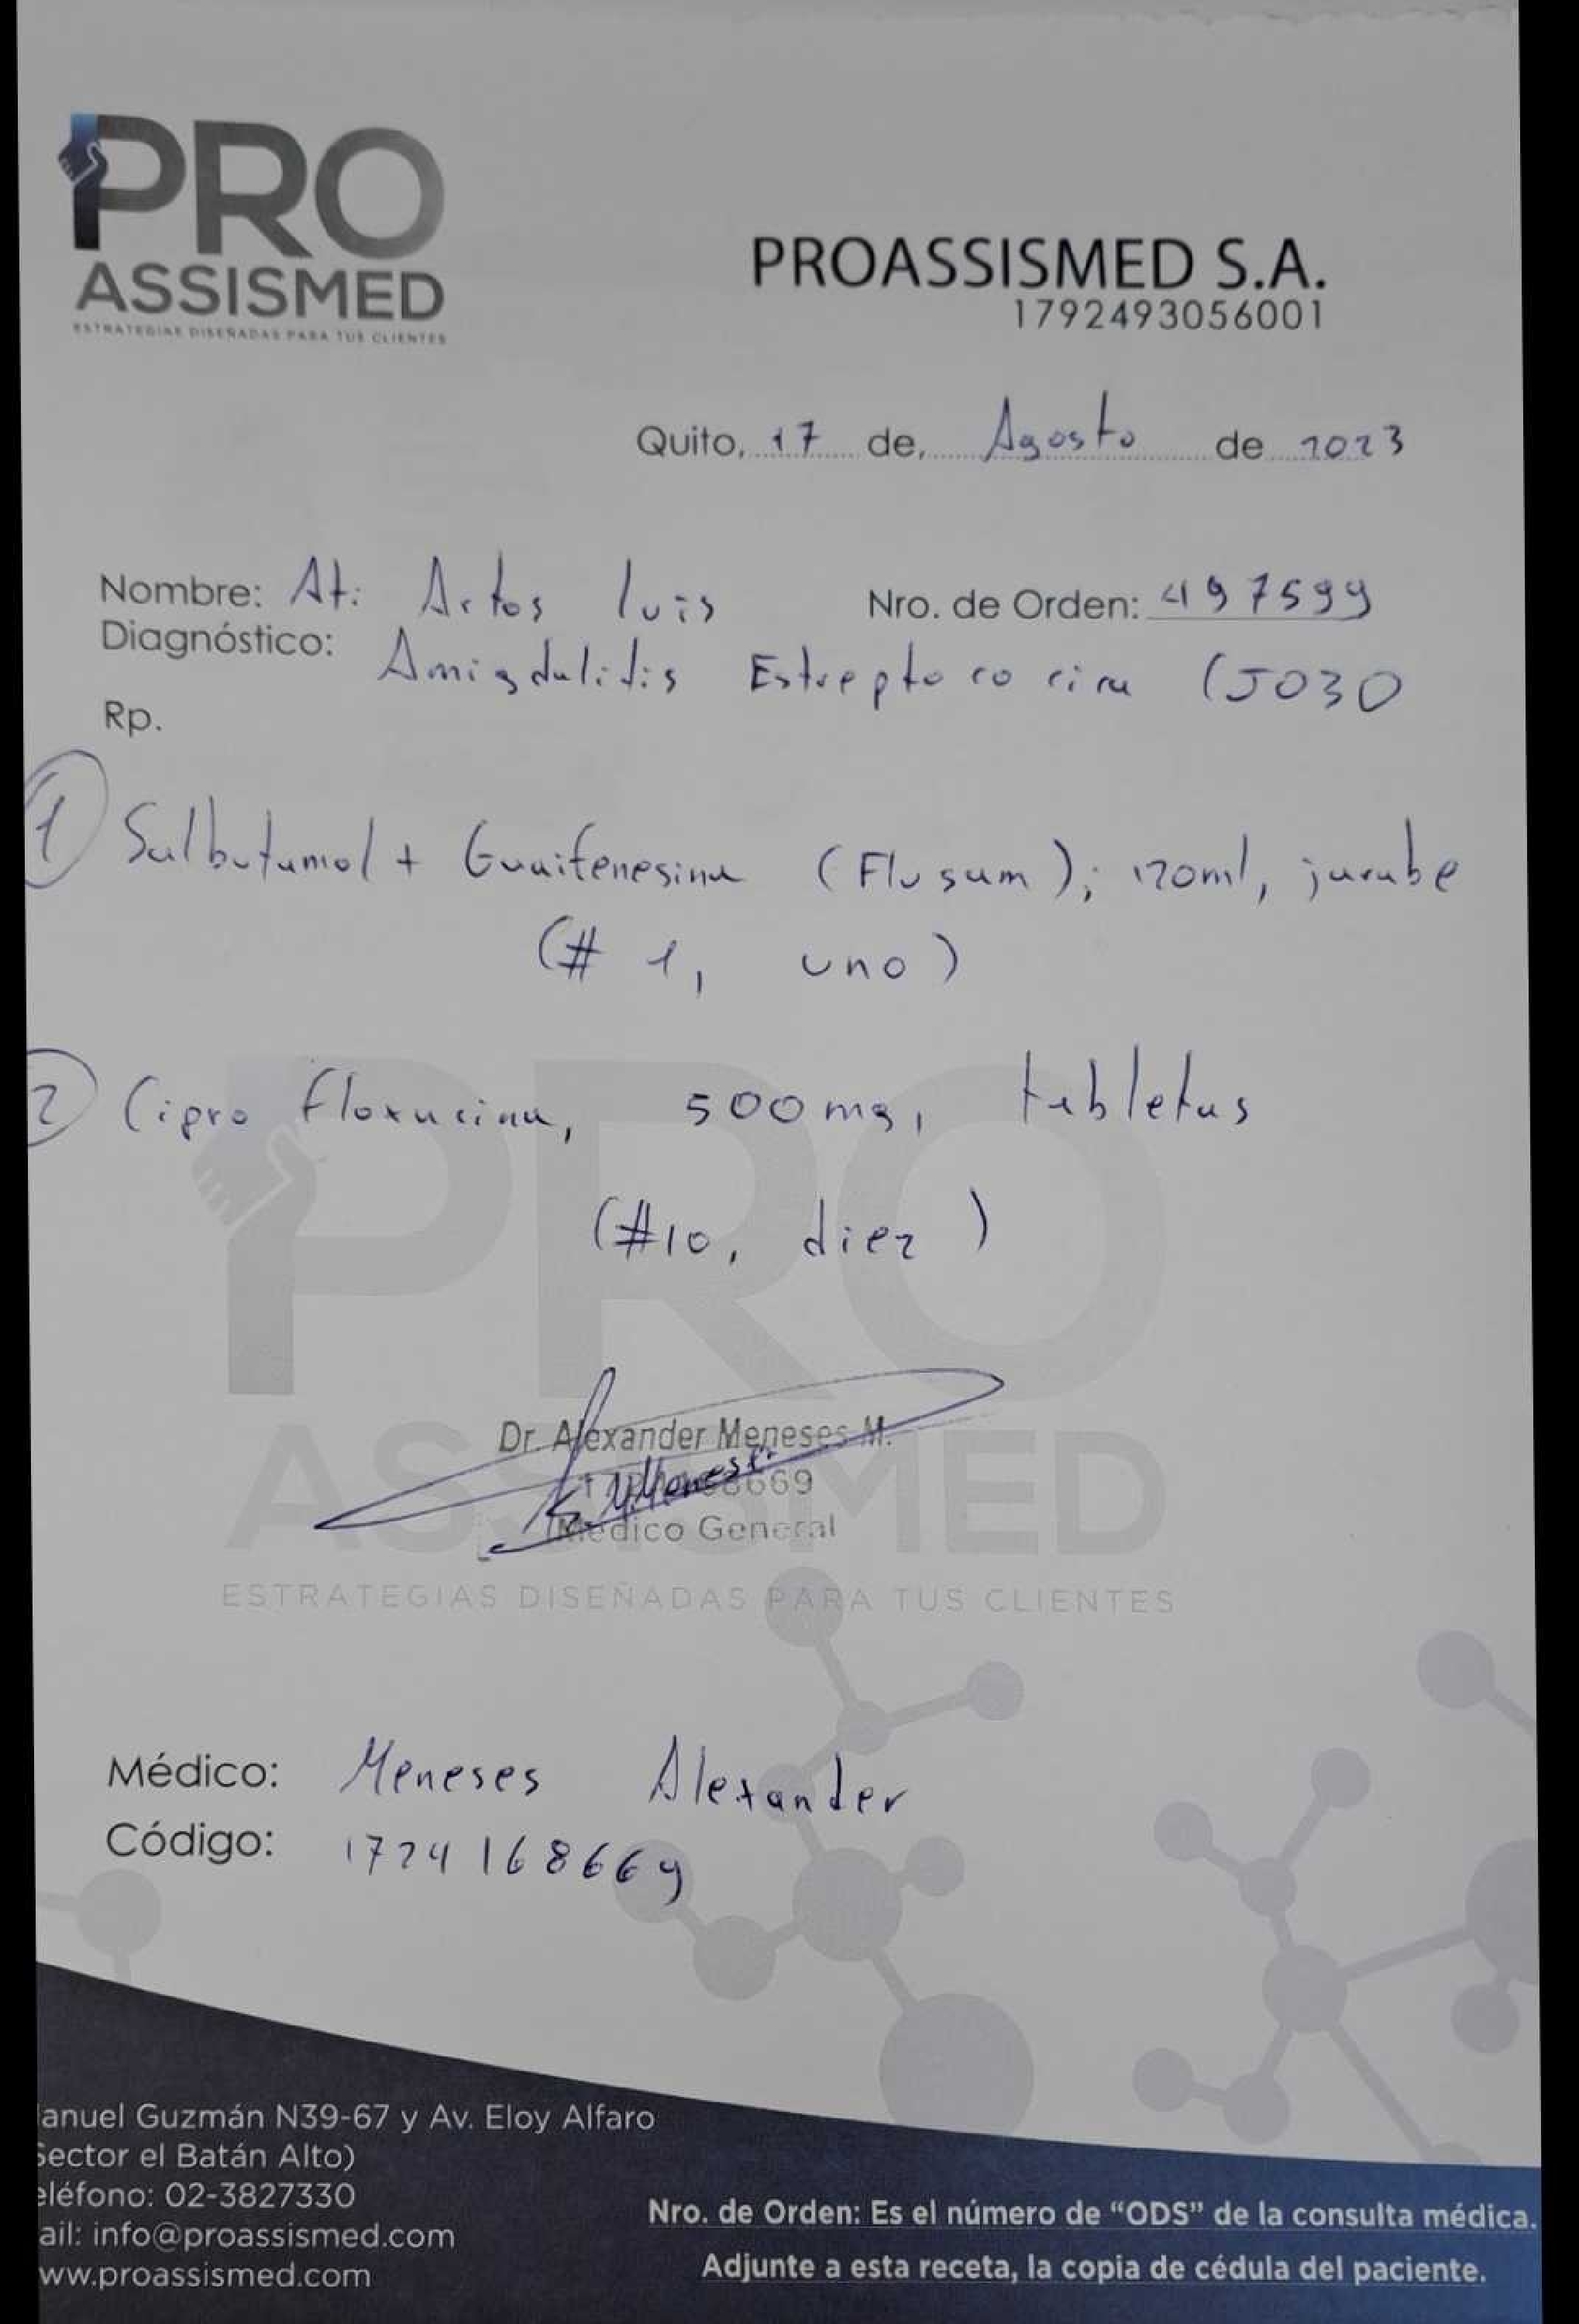 PRO
ASSISMED
ESTRATEGIAS DISEÑADAS PARA TUS CLIENTES
PROASSISMED S.A.
1792493056001
Quito, 17 de, Agosto de 2023
Nombre: At: Artos luis Nro. de Orden: 497599
Diagnóstico: Amigdalitis Estreptococica (J030
Rp.
1 Salbutamol + Guaifenesina (Flusam); 120ml, jarabe
(# 1, uno)
2 Cipro floxacina, 500mg, tabletas
(#10, diez)
PRO
Dr. Alexander Meneses M.
8669
Médico General
ASSISMED
ESTRATEGIAS DISEÑADAS PARA TUS CLIENTES
Médico: Meneses Alexander
Código: 1724168669
anuel Guzmán N39-67 y Av. Eloy Alfaro
Sector el Batán Alto)
eléfono: 02-3827330
ail: info@proassismed.com
ww.proassismed.com
Nro. de Orden: Es el número de “ODS” de la consulta médica.
Adjunte a esta receta, la copia de cédula del paciente.